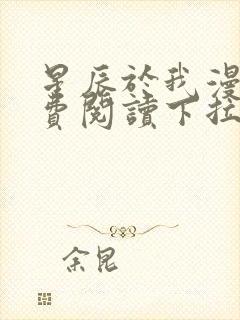 星辰於我漫
費閱讀下拉
余昆